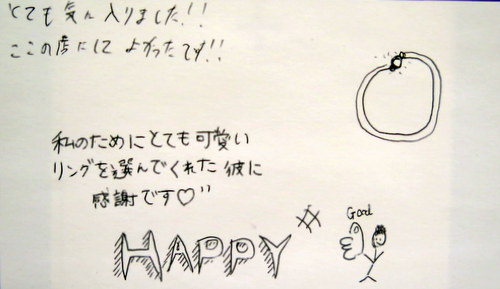 とても気に入りました!!
ここの店にして よかったです!!
私のためにとても可愛い
リングを選んでくれた彼に
感謝です♡"
HAPPY
Good